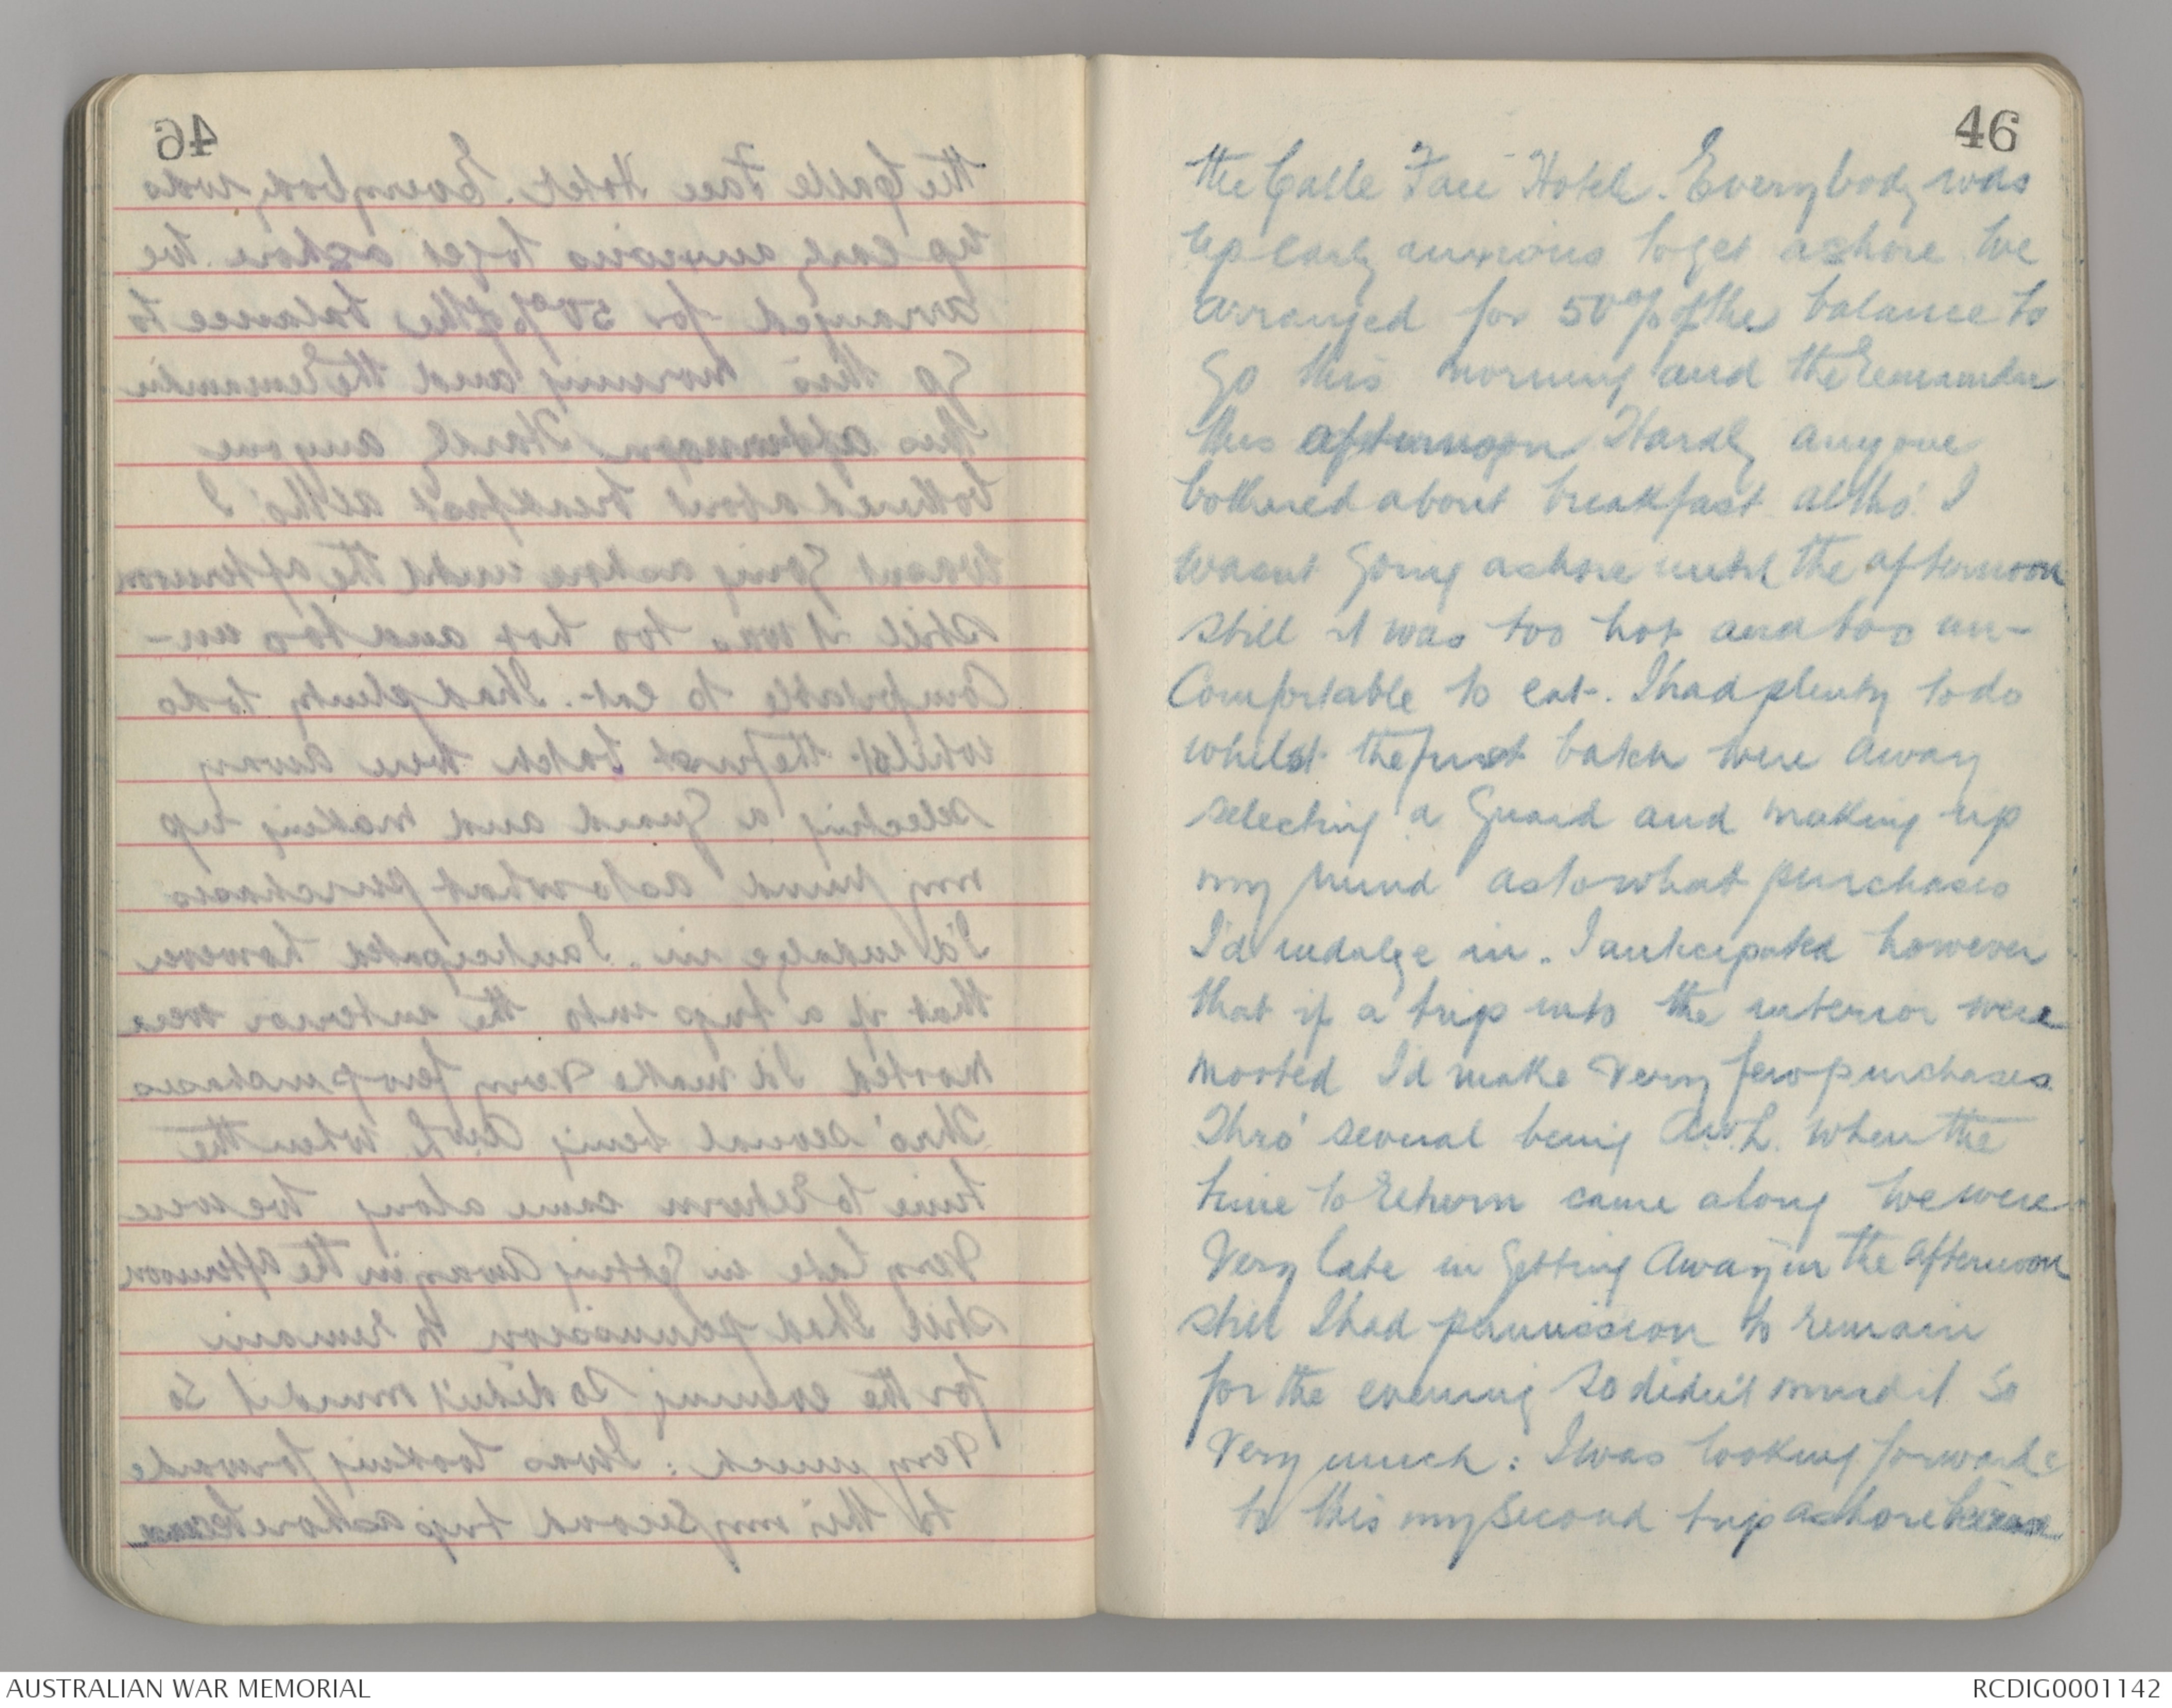 46
the Galle Face Hotel. Everybody was
up early anxious to get ashore. We
arranged for 50% of the balance to
go this morning and the remainder
this afternoon Hardly anyone
bothered about breakfast altho' I
wasnt going ashore until the afternoon
still it was too hot and too un-
comfortable to eat. I had plenty to do
whilst the first batch were away
selecting a Guard and making up
my mind as to what purchases
I'd indulge in. I anticipated however
that if a trip into the interior were
mooted I'd make very few purchases.
Thro' several being A.W.L. when the
time to return came along we were
Very late in getting away in the afternoon
still I had permission to remain
for the evening so didn't mind it so
very much: I was looking forward
to this my second trip ashore because
AUSTRALIAN WAR MEMORIAL
RCDIG0001142